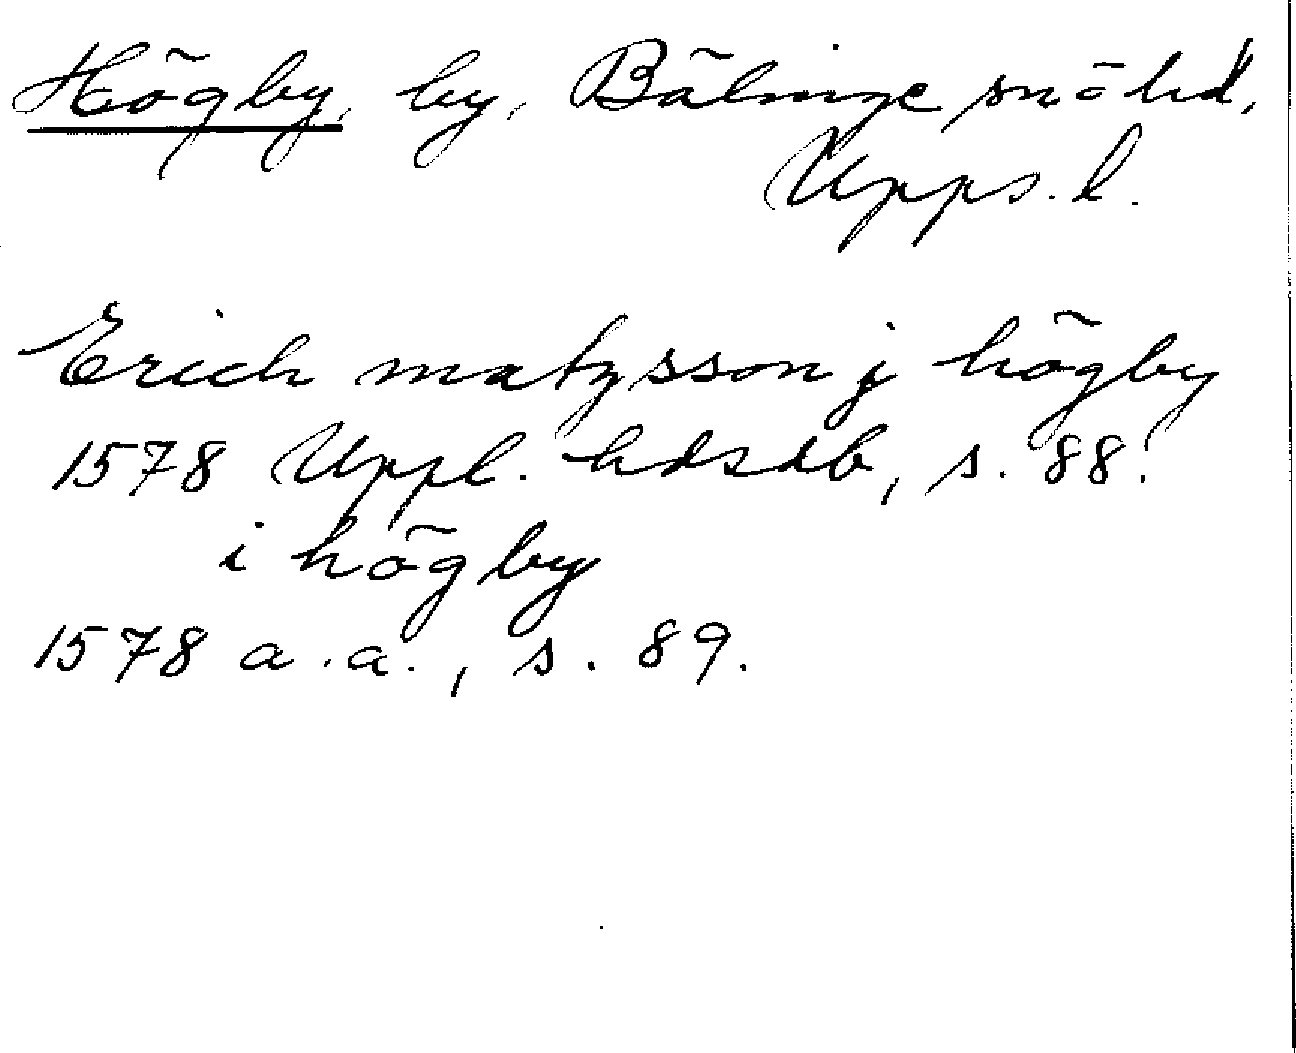 Högby, by, Bälinge sn o hd,
Upps. l.
Erich matzsson j högby
1578 Uppl. hdsdb, s. 88.
i högby
1578 a.a., s. 89.